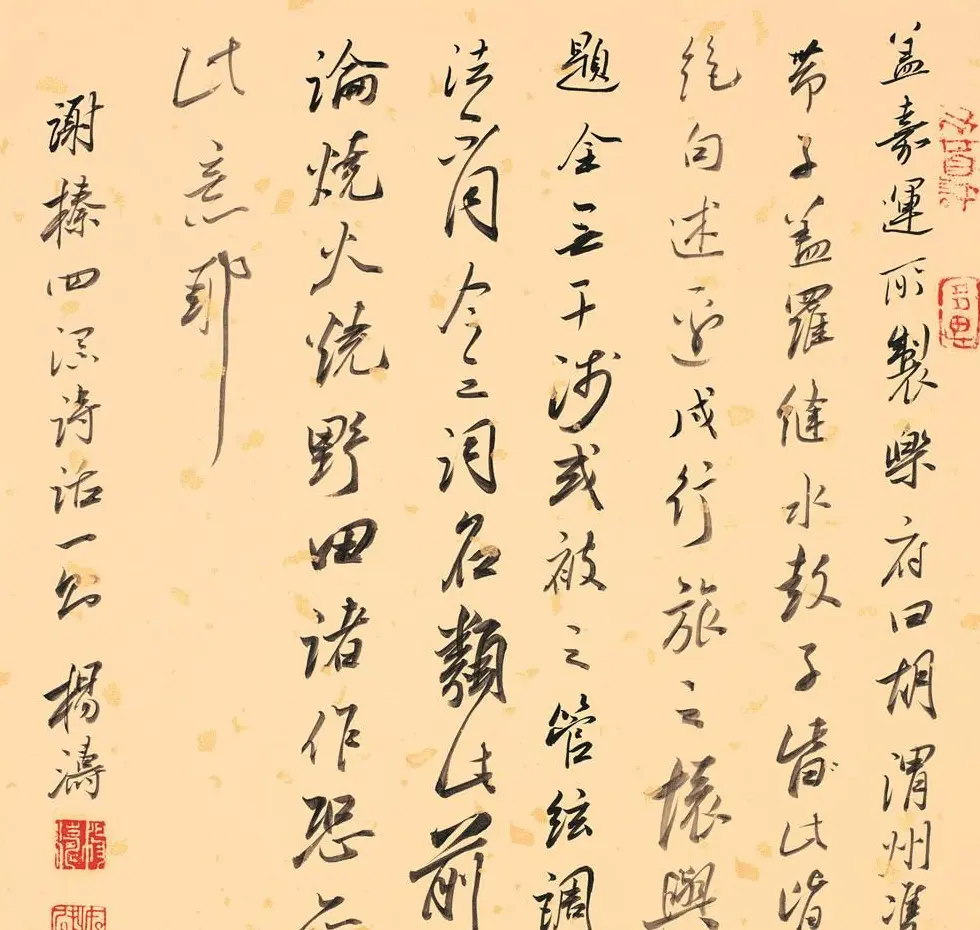 蓋嘉運所製樂府曰胡渭州雙
帶子蓋羅縫水鼓子皆此皆
絕句述邊戍行旅之懷與
題全無干涉或被之管絃調
法不同今之詞名類此前
論燒火燒野田諸作恐亦
此意耶
謝榛四溟詩話一則 楊濤